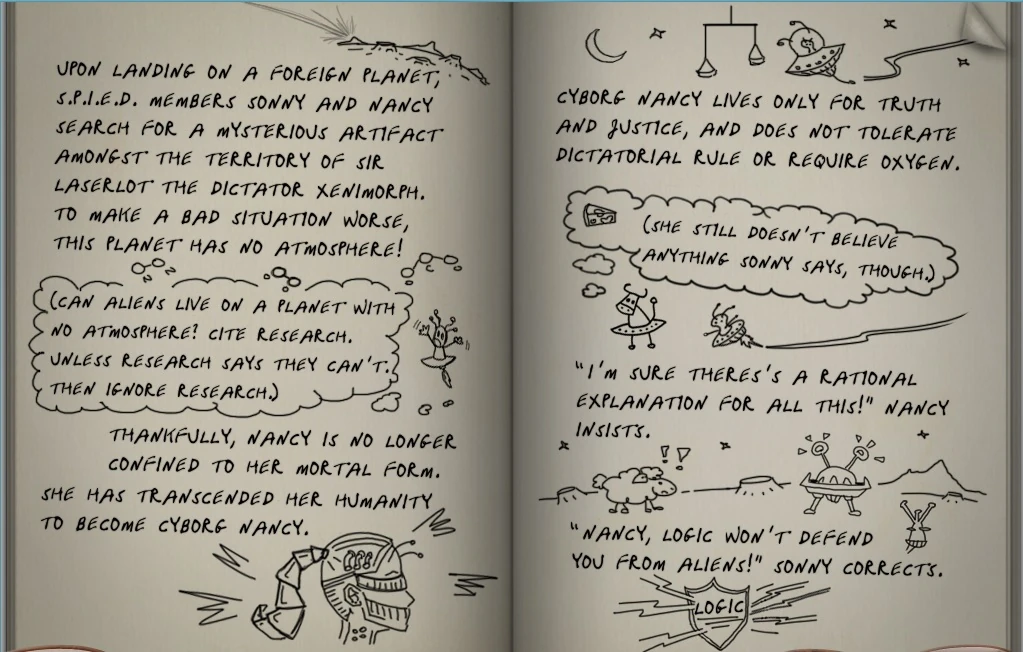 UPON LANDING ON A FOREIGN PLANET,
S.P.I.E.D. MEMBERS SONNY AND NANCY
SEARCH FOR A MYSTERIOUS ARTIFACT
AMONGST THE TERRITORY OF SIR
LASERLOT THE DICTATOR XENIMORPH.
TO MAKE A BAD SITUATION WORSE,
THIS PLANET HAS NO ATMOSPHERE!
(CAN ALIENS LIVE ON A PLANET WITH
NO ATMOSPHERE? CITE RESEARCH.
UNLESS RESEARCH SAYS THEY CAN'T.
THEN IGNORE RESEARCH.)
THANKFULLY, NANCY IS NO LONGER
CONFINED TO HER MORTAL FORM.
SHE HAS TRANSCENDED HER HUMANITY
TO BECOME CYBORG NANCY.
CYBORG NANCY LIVES ONLY FOR TRUTH
AND JUSTICE, AND DOES NOT TOLERATE
DICTATORIAL RULE OR REQUIRE OXYGEN.
(SHE STILL DOESN'T BELIEVE
ANYTHING SONNY SAYS, THOUGH.)
"I'M SURE THERES'S A RATIONAL
EXPLANATION FOR ALL THIS!" NANCY
INSISTS.
!!
"NANCY, LOGIC WON'T DEFEND
YOU FROM ALIENS!" SONNY CORRECTS.
LOGIC